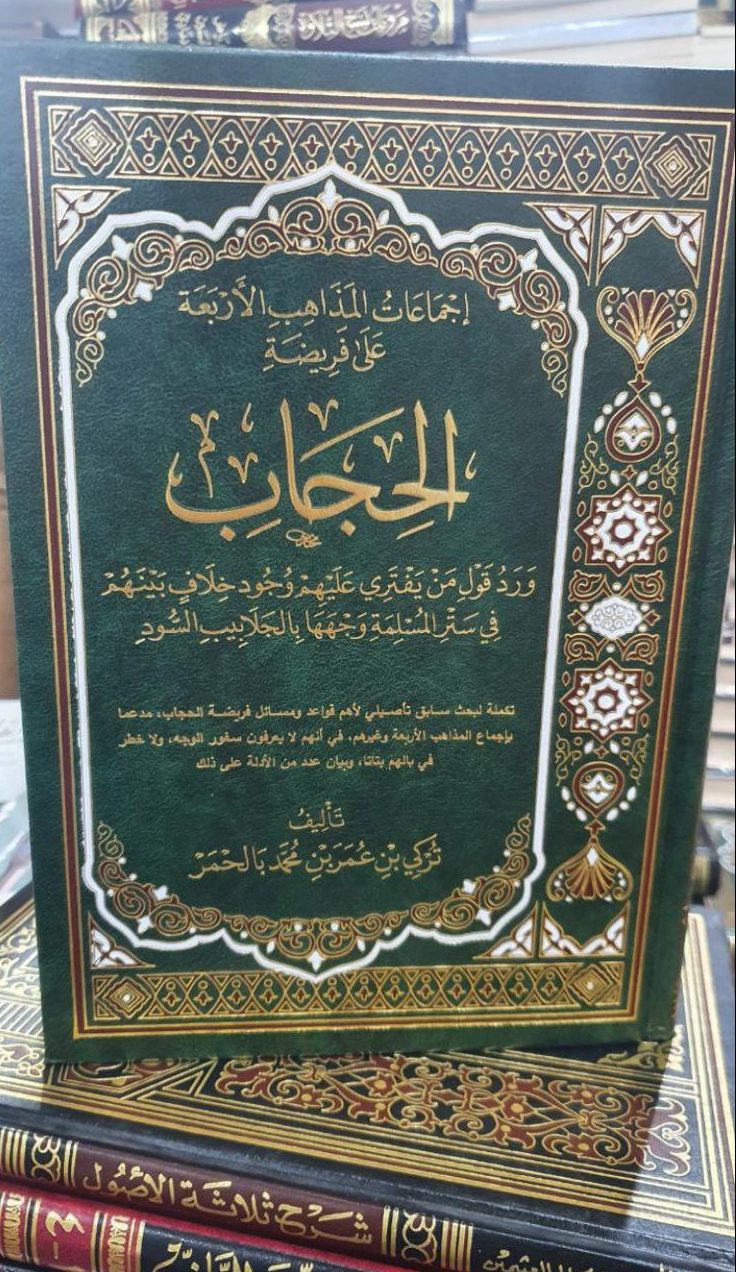 إِجْمَاعَاتُ المَذَاهِبِ الأَرْبَعَة
عَلَى فَرِيضَةِ
الحِجَابِ
وَرَدُ قَوْلِ مَنْ يَفْتَرِي عَلَيْهِمْ وُجُود خِلَافٍ بَيْنَهُمْ
فِي سَتْرِ المُسْلِمَةِ وَجْهَهَا بِالجَلَابِيبِ السُّودِ
تكملة لبحث سابق تأصيلي لأهم قواعد ومسائل فريضة الحجاب، مدعما
بإجماع المذاهب الأربعة وغيرهم، في أنهم لا يعرفون سفور الوجه، ولا خطر
في بالهم بتاتا، وبيان عدد من الأدلة على ذلك
تَأْلِيفُ
تُرْكِي بْنِ عُمَرَ بْنِ مُحَمَّد بَالحْمَرْ
شَرْح ثَلاثَة الأصُول
٤